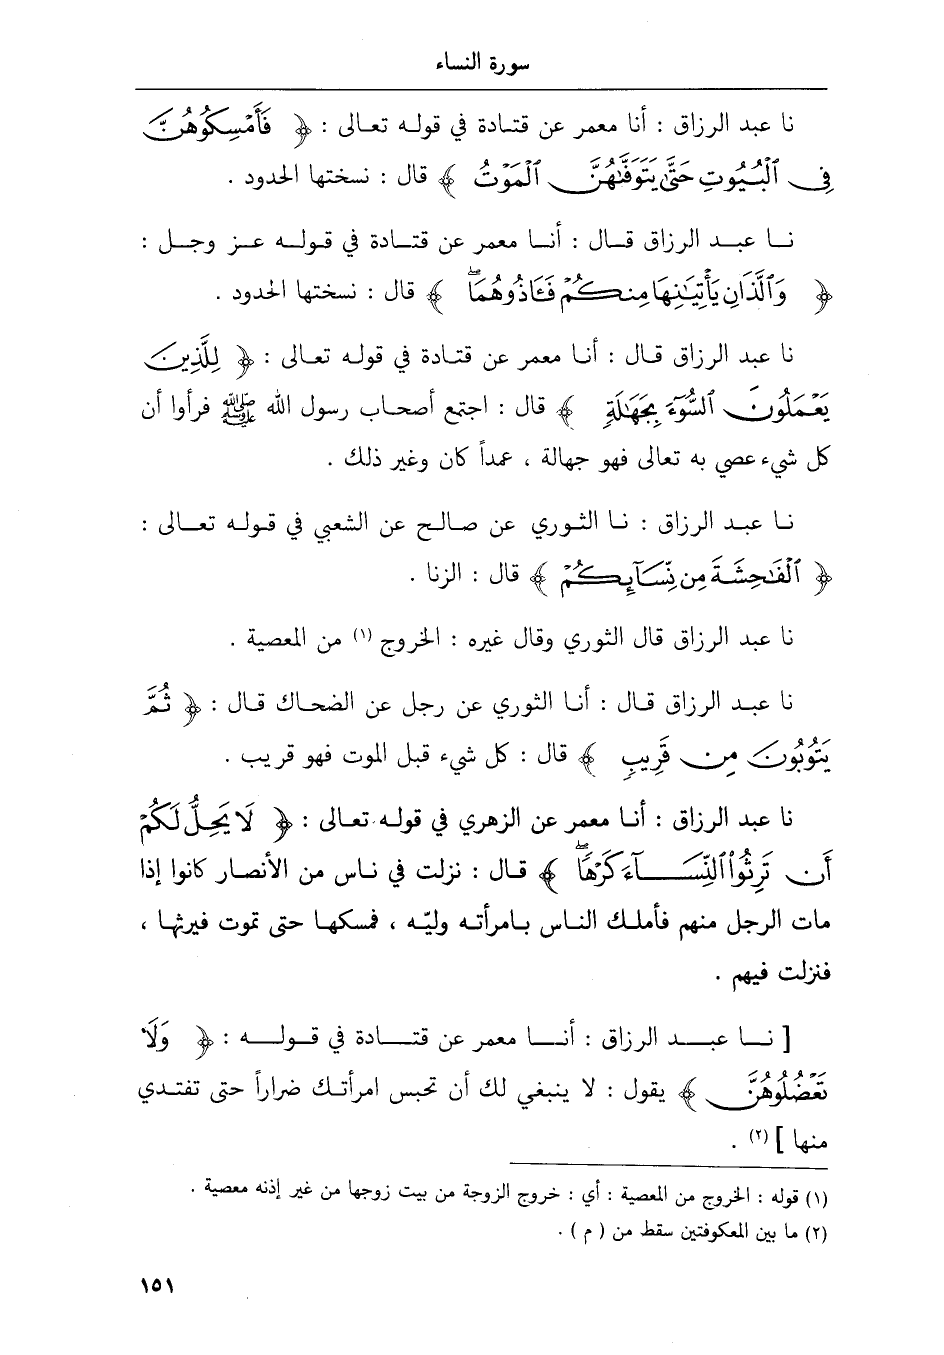 سورة النساء
نا عبد الرزاق : أنا معمر عن قتادة في قوله تعالى : ﴿ فَأَمْسِكُوهُنَّ
فِي الْبُيُوتِ حَتَّىٰ يَتَوَفَّاهُنَّ الْمَوْتُ ﴾ قال : نسختها الحدود .
نا عبد الرزاق قال : أنا معمر عن قتادة في قوله عز وجل :
﴿ وَالَّذَانِ يَأْتِيَانِهَا مِنكُمْ فَآذُوهُمَا ۖ ﴾ قال : نسختها الحدود .
نا عبد الرزاق قال : أنا معمر عن قتادة في قوله تعالى : ﴿ لِلَّذِينَ
يَعْمَلُونَ السُّوءَ بِجَهَالَةٍ ﴾ قال : اجتمع أصحاب رسول الله ﷺ فرأوا أن
كل شيء عصي به تعالى فهو جهالة ، عمداً كان وغير ذلك .
نا عبد الرزاق : نا الثوري عن صالح عن الشعبي في قوله تعالى :
﴿ الْفَاحِشَةَ مِن نِّسَائِكُمْ ﴾ قال : الزنا .
نا عبد الرزاق قال الثوري وقال غيره : الخروج (١) من المعصية .
نا عبد الرزاق قال : أنا الثوري عن رجل عن الضحاك قال : ﴿ ثُمَّ
يَتُوبُونَ مِن قَرِيبٍ ﴾ قال : كل شيء قبل الموت فهو قريب .
نا عبد الرزاق : أنا معمر عن الزهري في قوله تعالى : ﴿ لَا يَحِلُّ لَكُمْ
أَن تَرِثُوا النِّسَاءَ كَرْهًا ۖ ﴾ قال : نزلت في ناس من الأنصار كانوا إذا
مات الرجل منهم فأملك الناس بامرأته وليّه ، فمسكها حتى تموت فيرثها ،
فنزلت فيهم .
[ نا عبد الرزاق : أنا معمر عن قتادة في قوله : ﴿ وَلَا
تَعْضُلُوهُنَّ ﴾ يقول : لا ينبغي لك أن تحبس امرأتك ضراراً حتى تفتدي
منها ] (٢) .
(١) قوله : الخروج من المعصية : أي : خروج الزوجة من بيت زوجها من غير إذنه معصية .
(٢) ما بين المعكوفتين سقط من ( م ) .
١٥١